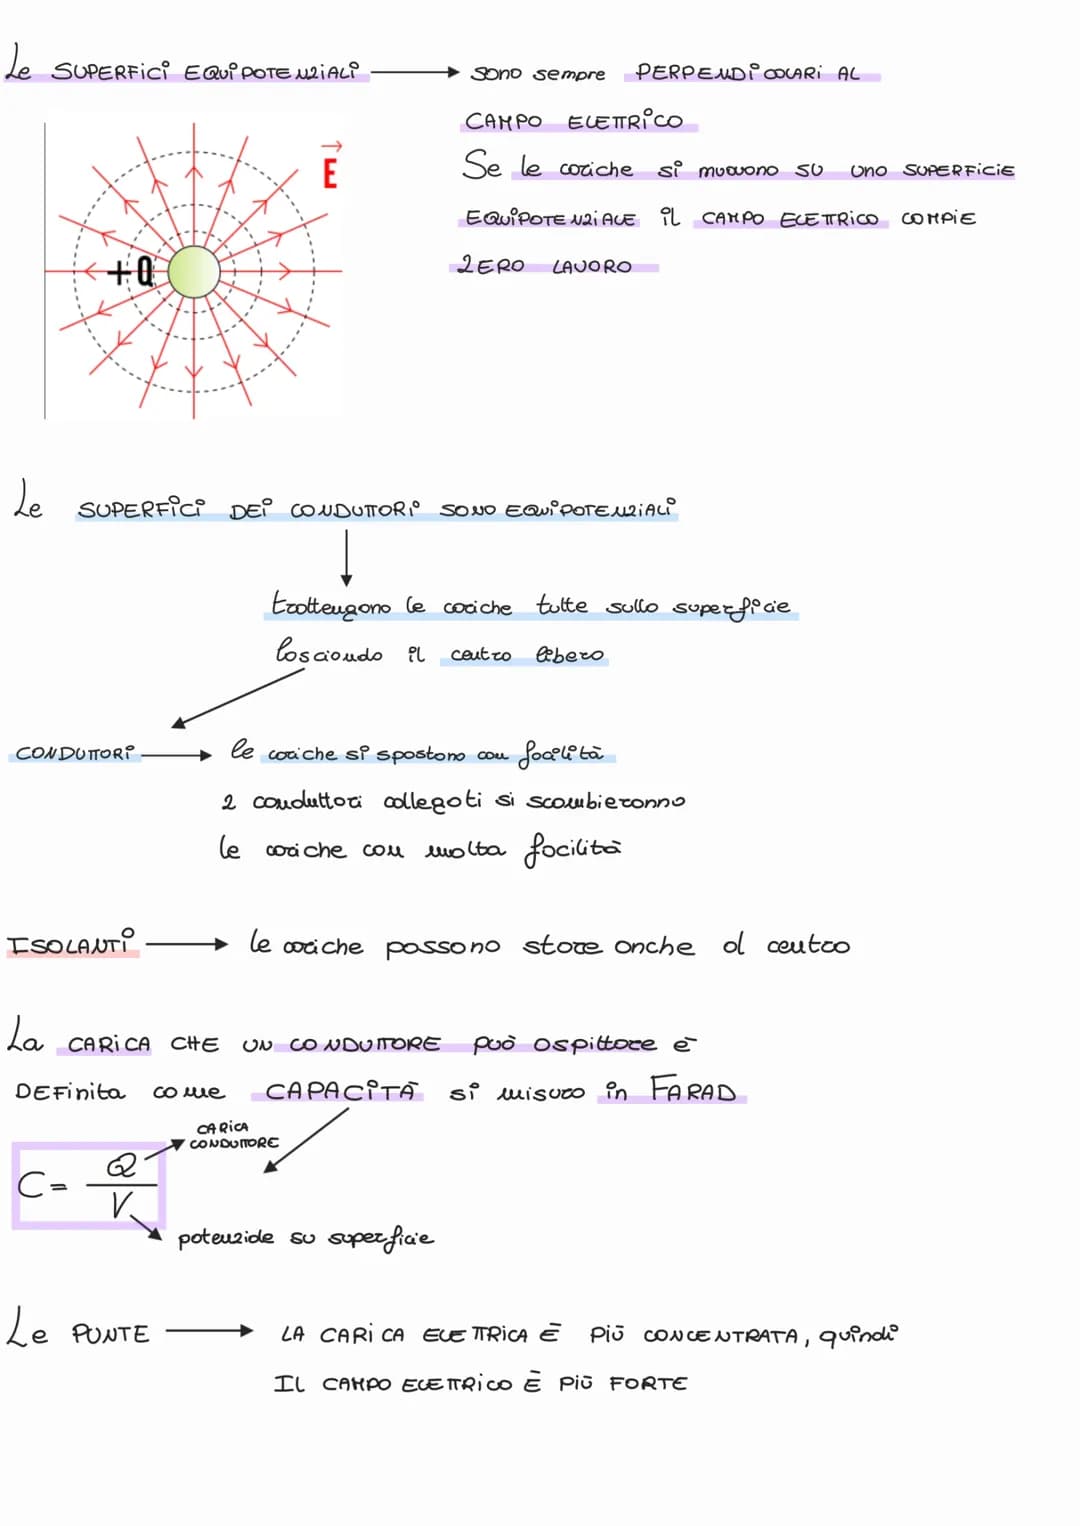 Le SUPERFICI EQUIPOTENZIALI → sono sempre PERPENDICOLARI AL
CAMPO ELETTRICO
E
Se le cariche si muovono su una SUPERFICIE
EQUIPOTENZIALE il CAMPO ELETTRICO COMPIE
+Q
ZERO LAVORO
Le SUPERFICI DEI CONDUTTORI SONO EQUIPOTENZIALI
trattengono le cariche tutte sulla superficie
lasciando il centro libero
CONDUTTORI → le cariche si spostano con facilità
2 conduttori collegati si scambieranno
le cariche con molta facilità
ISOLANTI → le cariche possono stare anche al centro
La CARICA CHE UN CONDUTTORE può ospittare è
DEFinita come CAPACITÀ si misura in FARAD
CARICA
CONDUTTORE
C = Q
V
potenziale su superficie
Le PUNTE → LA CARICA ELETTRICA È PIÙ CONCENTRATA, quindi
IL CAMPO ELETTRICO È PIÙ FORTE